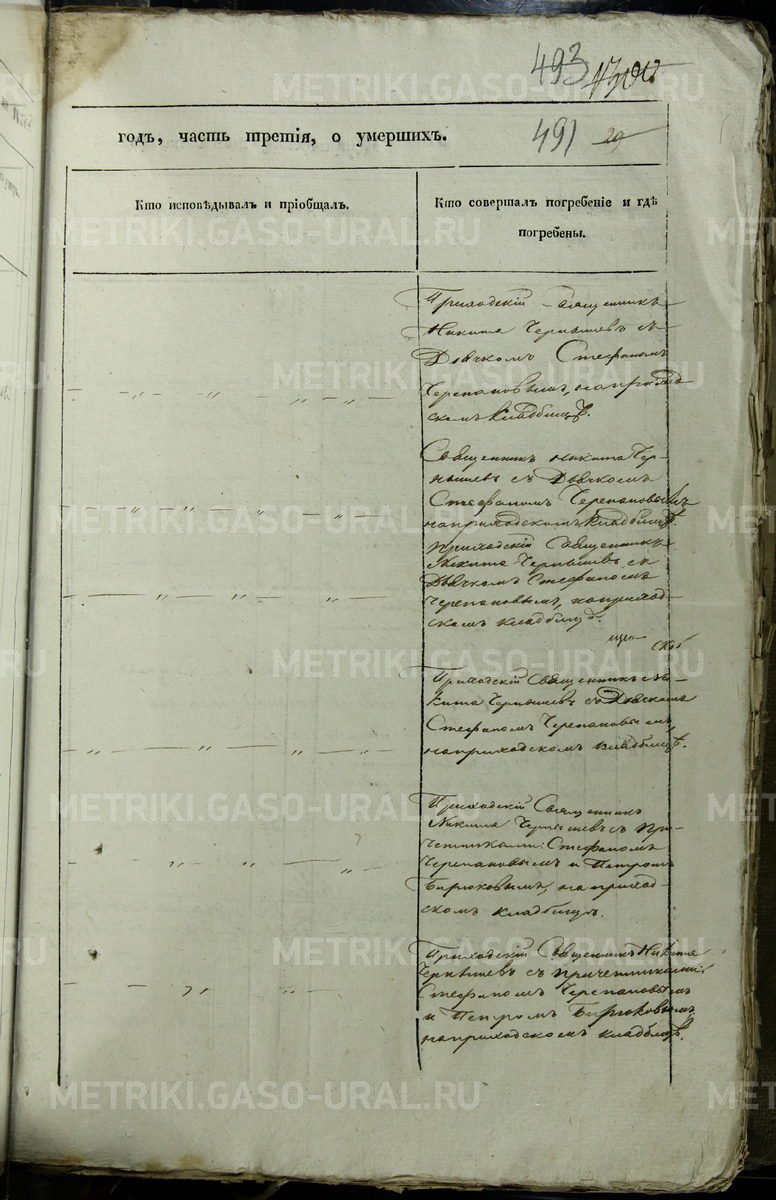 493
491 29
годъ, часть третія, о умершихъ.
Кто исповѣдывалъ и пріобщалъ.
Кто совершалъ погребеніе и гдѣ
погребены.
Приходскій Священникъ
Никита Чернышевъ съ
Дьячкомъ Стефаномъ
Черепановымъ, на приход-
скомъ кладбищѣ.
Священникъ Никита Чер-
нышевъ съ Дьячкомъ
Стефаномъ Черепановымъ
на приходскомъ кладбищѣ.
Приходскій Священникъ
Никита Чернышевъ съ
Дьячкомъ Стефаномъ
Черепановымъ, на приход-
скомъ кладбищѣ.
Приходскій Священникъ Ни-
кита Чернышевъ съ Дьячкомъ
Стефаномъ Черепановымъ,
на приходскомъ кладбищѣ.
Приходскій Священникъ
Никита Чернышевъ съ при-
четниками: Стефаномъ
Черепановымъ и Петромъ
Бирюковымъ, на приход-
скомъ кладбищѣ.
Приходскій Священникъ Никита
Чернышевъ съ причетниками:
Стефаномъ Черепановымъ
и Петромъ Бирюковымъ,
на приходскомъ кладбищѣ.
METRIKI.GASO-URAL.RU